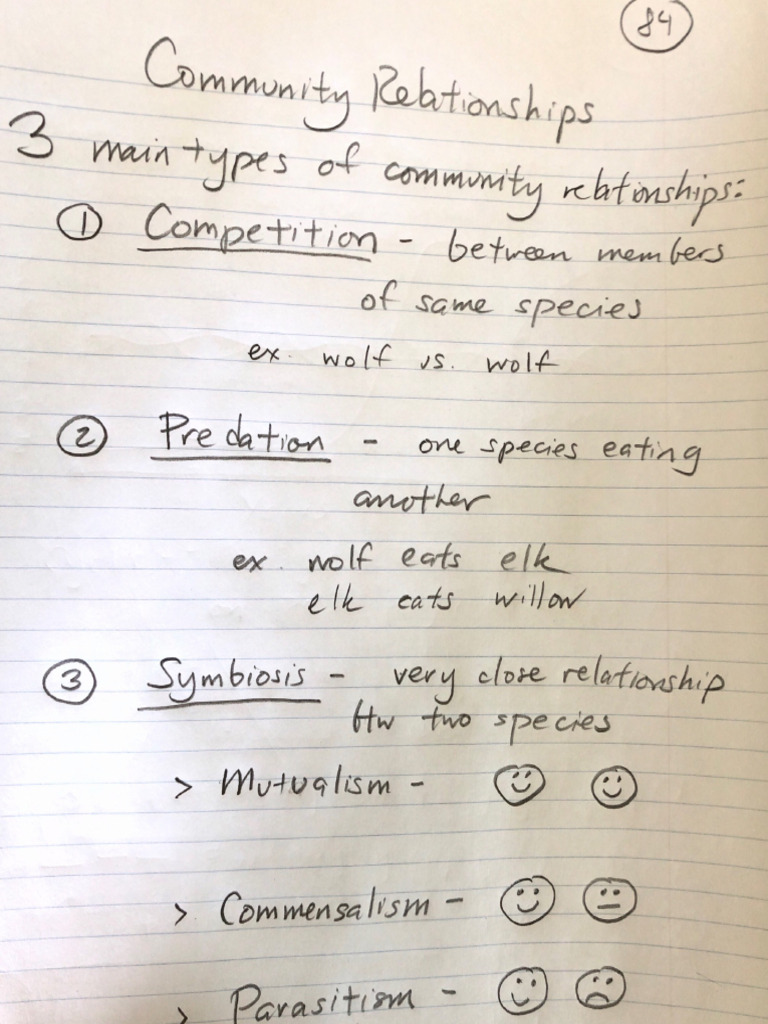 84
Community Relationships
3 main types of community relationships:
① Competition - between members
of same species
ex. wolf vs. wolf
② Predation - one species eating
another
ex. wolf eats elk
elk eats willow
③ Symbiosis - very close relationship
btw two species
> Mutualism -
> Commensalism -
> Parasitism -